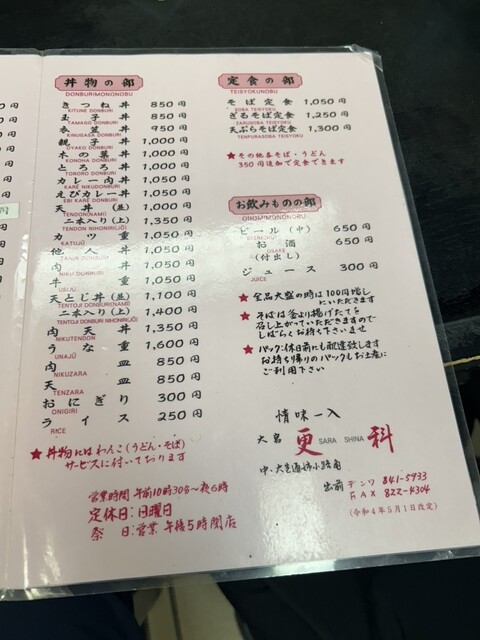 丼物の部
DONBURIMONONOBU
きつね丼 850円
KITUNE DONBURI
玉子丼 850円
TAMAGO DONBURI
衣笠丼 950円
KINUGASA DONBURI
親子丼 1,000円
OYAKO DONBURI
木の葉丼 1,000円
KONOHA DONBURI
とろろ丼 1,000円
TORORO DONBURI
カレー肉丼 1,050円
KARE NIKUDONBURI
えびカレー丼 1,050円
EBI KARE DONBURI
天丼(並) 1,000円
TENDON(NAMI)
二本入り(上) 1,350円
TENDON NIHONIRI(JO)
カツ重 1,050円
KATUJŪ
他人丼 1,050円
TANIN DONBURI
肉丼 1,050円
NIKU DONBURI
牛重 1,050円
天とじ丼(並) 1,100円
TENTOJI DONBURI(NAMI)
二本入り(上) 1,400円
TENTOJI DONBURI NIHONIRI(JO)
肉天丼 1,350円
NIKUTENDON
うな重 1,600円
UNAJŪ
肉皿 850円
NIKUZARA
天皿 850円
TENZARA
おにぎり 300円
ONIGIRI
ライス 250円
RICE
★丼物にはわんこ(うどん・そば)
サービスに付いております
営業時間 午前10時30分〜夜6時
定休日:日曜日
祭日:営業 午後5時閉店
定食の部
TEISYOKUNOBU
そば定食 1,050円
SOBA TEISYOKU
ざるそば定食 1,250円
ZARUSOBA TEISYOKU
天ぷらそば定食 1,300円
TENPURASOBA TEISYOKU
★その他各そば・うどん
350円追加で定食できます
お飲みものの部
ONOMIMONONOBU
ビール(中) 650円
お酒 650円
OSAKE
(付出し)
ジュース 300円
JUICE
★全品大盛の時は100円増し
にいただきます
★そばは釜より揚げたてを
召し上がっていただきますので
しばらくお待ち下さいませ
★パック:休日前にも配達致します
お持ち帰りのパックもお土産に
ご利用下さい
情味一入
大宮 更 SARA SHINA 科
出前 デンワ 841-5933
FAX 822-4304
(令和4年5月1日改定)